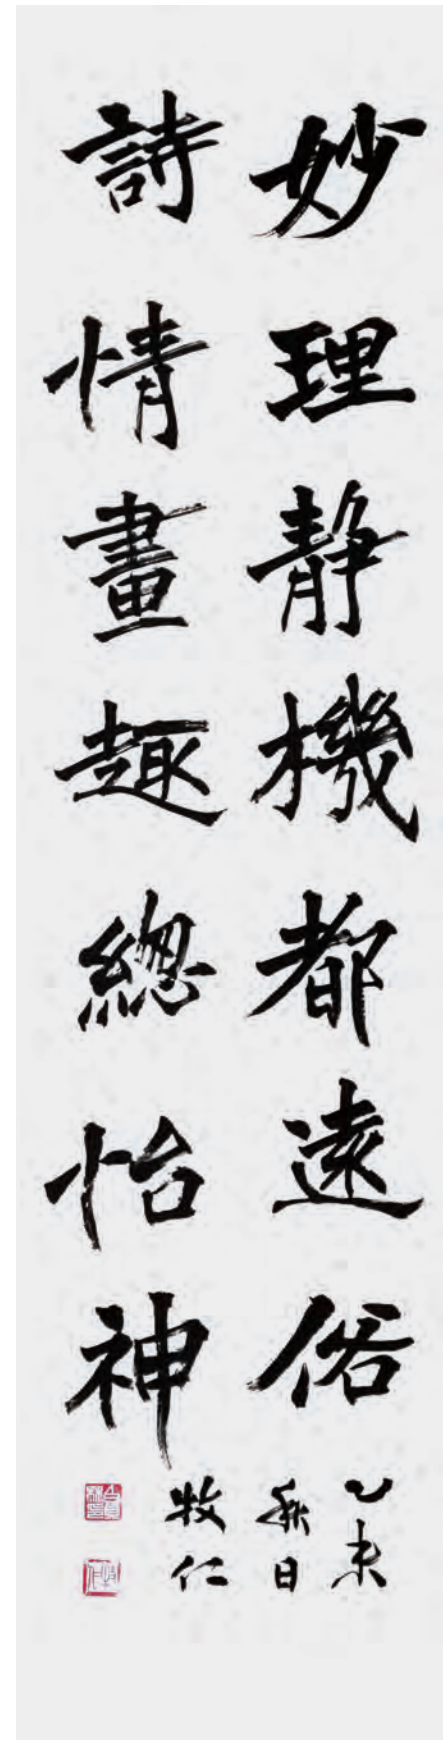 妙理靜機都遠俗
詩情畫趣總怡神
乙未
秋日
牧仁